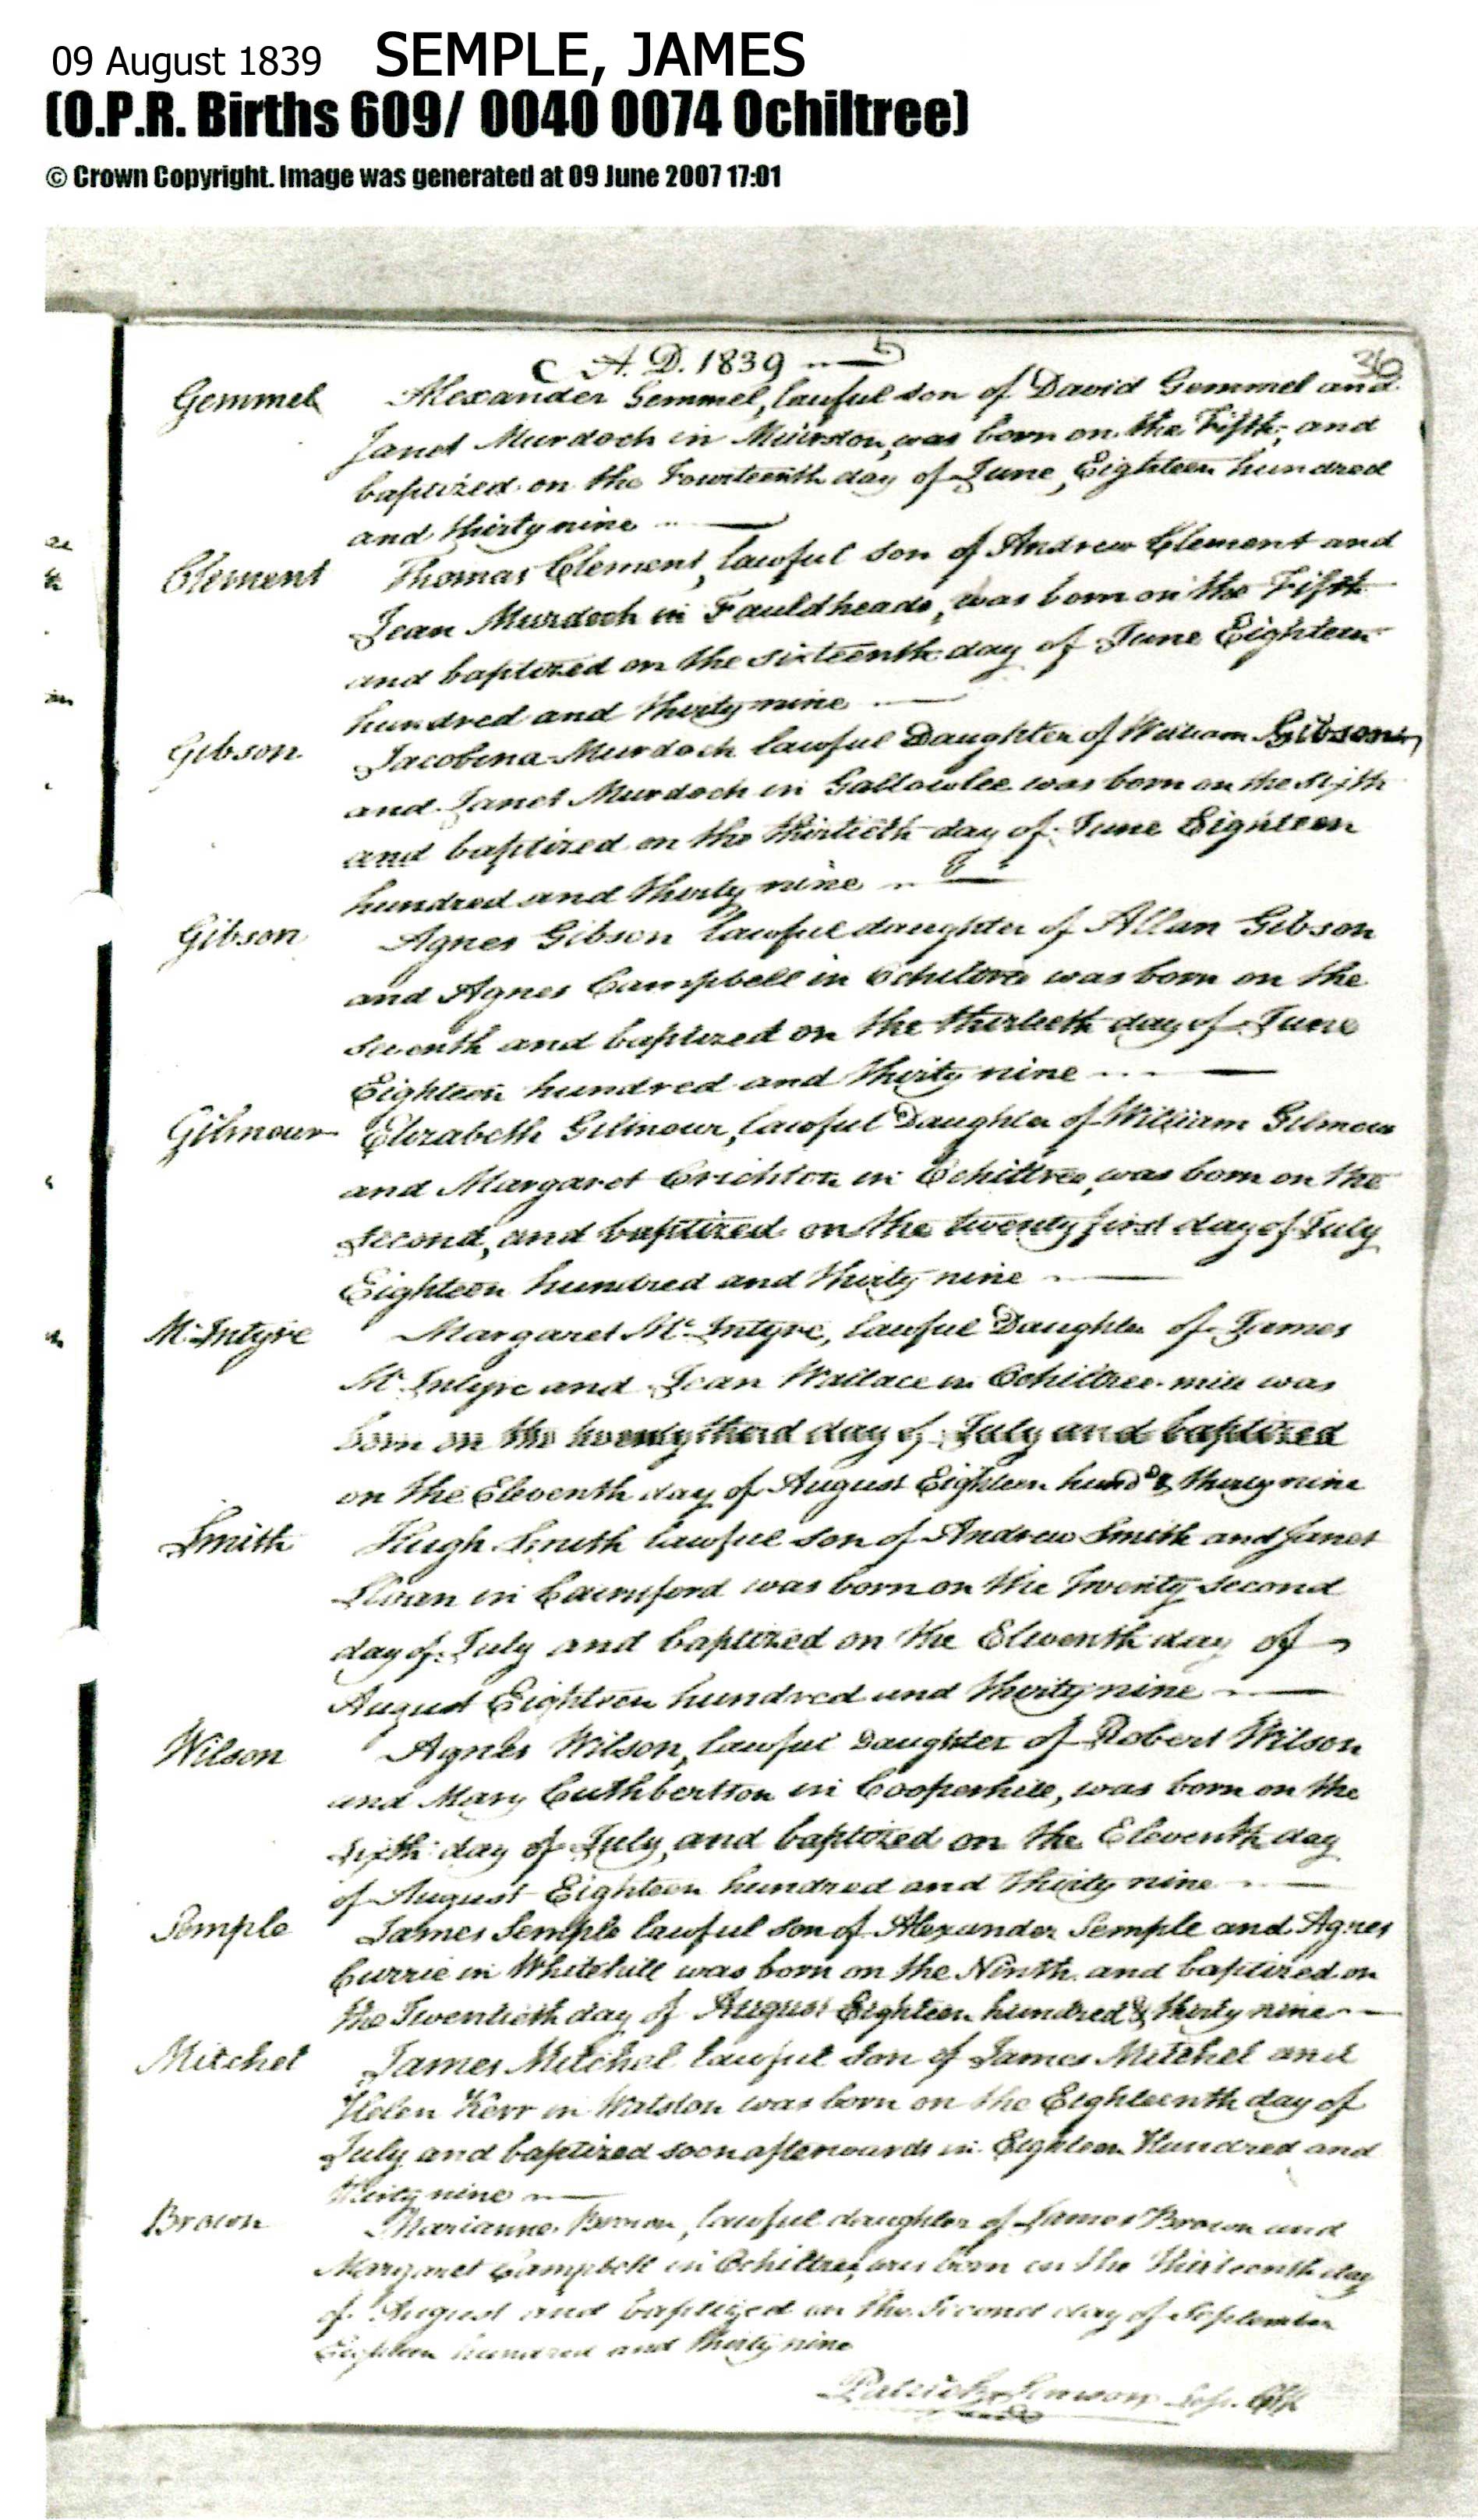 09 August 1839 SEMPLE, JAMES
(O.P.R. Births 609/ 0040 0074 Ochiltree)
© Crown Copyright. Image was generated at 09 June 2007 17:01
A. D. 1839
36
Gemmel Alexander Gemmel, lawful son of David Gemmel and
Janet Murdoch in Muirston, was born on the Fifth, and
baptized on the Fourteenth day of June, Eighteen hundred
and thirty nine
Clement Thomas Clement, lawful son of Andrew Clement and
Jean Murdoch in Fauldheads, was born on the Fifth
and baptized on the sixteenth day of June Eighteen
hundred and thirty nine
Gibson Jacobina Murdoch lawful Daughter of William Gibson
and Janet Murdoch in Gallowlee was born on the
and baptized on the thirtieth day of June Eighteen
hundred and thirty nine
Gibson Agnes Gibson lawful daughter of Allan Gibson
and Agnes Campbell in Ochiltree was born on the
seventh and baptized on the thirtieth day of June
Eighteen hundred and thirty nine
Gilmour Elizabeth Gilmour, lawful Daughter of William Gilmour
and Margaret Crichton in Ochiltree, was born on the
second, and baptized on the twenty first day of July
Eighteen hundred and thirty nine
Mc Intyre Margaret Mc Intyre, lawful Daughter of James
Mc Intyre and Jean Wallace in Ochiltree mill was
born on the twenty third day of July and baptized
on the Eleventh day of August Eighteen hundd & thirty nine
Smith Hugh Smith lawful son of Andrew Smith and Janet
Sloan in Cairnford was born on the Twenty second
day of July and baptized on the Eleventh day of
August Eighteen hundred and thirty nine
Wilson Agnes Wilson, lawful Daughter of Robert Wilson
and Mary Cuthbertson in Cooperhill, was born on the
sixth day of July, and baptized on the Eleventh day
of August Eighteen hundred and thirty nine
Semple James Semple lawful son of Alexander Semple and Agnes
Currie in Whitehill was born on the Ninth and baptized on
the Twentieth day of August Eighteen hundred & thirty nine
Mitchel James Mitchel lawful son of James Mitchel and
Helen Kerr in Watston was born on the Eighteenth day of
July and baptized soon afterwards in Eighteen Hundred and
thirty nine
Brown Marianne Brown, lawful daughter of James Brown and
Margaret Campbell in Ochiltree, was born on the Thirteenth day
of August and baptized on the Second day of September
Eighteen hundred and thirty nine
Patrick